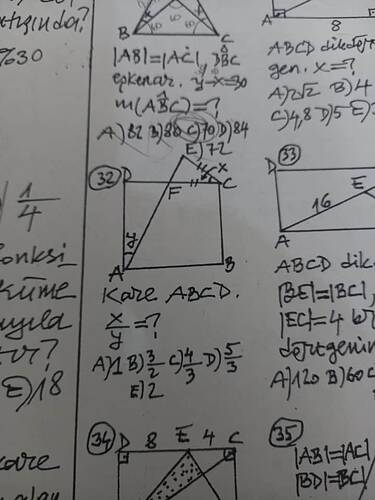 %30
1/4
onksi
küme
E) 18
B C
|AB|=|AC|, DBC
eşkenar. y-x=30
m(ABC)=?
A) 82 B) 80 C) 70 D) 84
E) 72
32
D E x C
F
y
A B
Kare ABCD.
x/y=?
A) 1 B) 3/2 C) 4/3 D) 5/3
E) 2
34 D 8 E 4 C
A 8
ABCD
gen. x=?
A) 2√2 B) 4
C) 4,8 D) 5 E)
33
D
E
16
A
ABCD dik
|BE|=|BC|,
|EC|=4 br
A) 120 B) 60
35
|AB|=|AC|
|BD|=|BC|